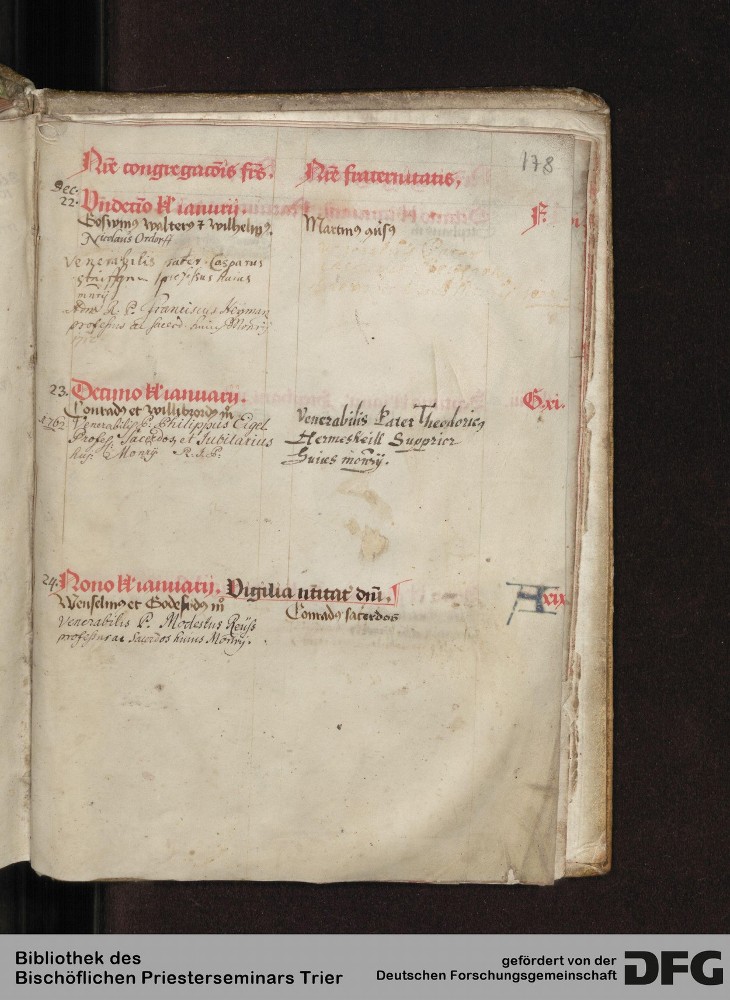 178
Nr̄e congregacōis frīs. Nr̄e fraternitatis,
Dec.
22. Vndecīo kl' ianuarij F
Goswinꝰ walterꝰ ⁊ wilhelmꝰ. Martinꝰ
Nicolaus Ordorff
Venerabilis Pater Casparus
huius
mnrij
R. P. Franciscus Heyman
professus ac sacerd. huius Monrij
23. Decimo kl' ianuarij. G.xi.
Conradꝰ et willibrordꝰ m̄
1762 Venerabilis P. Philippus Eigel
Profess. Sacerdos et Jubilarius
huj. Monrij R.I.P.
Venerabilis Pater Theodoricꝰ
Hermeskeill Supprior
huius monrij.
24. Nono kl' ianuarij. Vigilia ntitat' dn̄i. A xij
Wenselinꝰ et Godefridꝰ m̊ Conradꝰ sacerdos
Venerabilis P. Modestus Reüss
professus ac sacerdos huius Monrij.
Bibliothek des
Bischöflichen Priesterseminars Trier
gefördert von der
Deutschen Forschungsgemeinschaft DFG